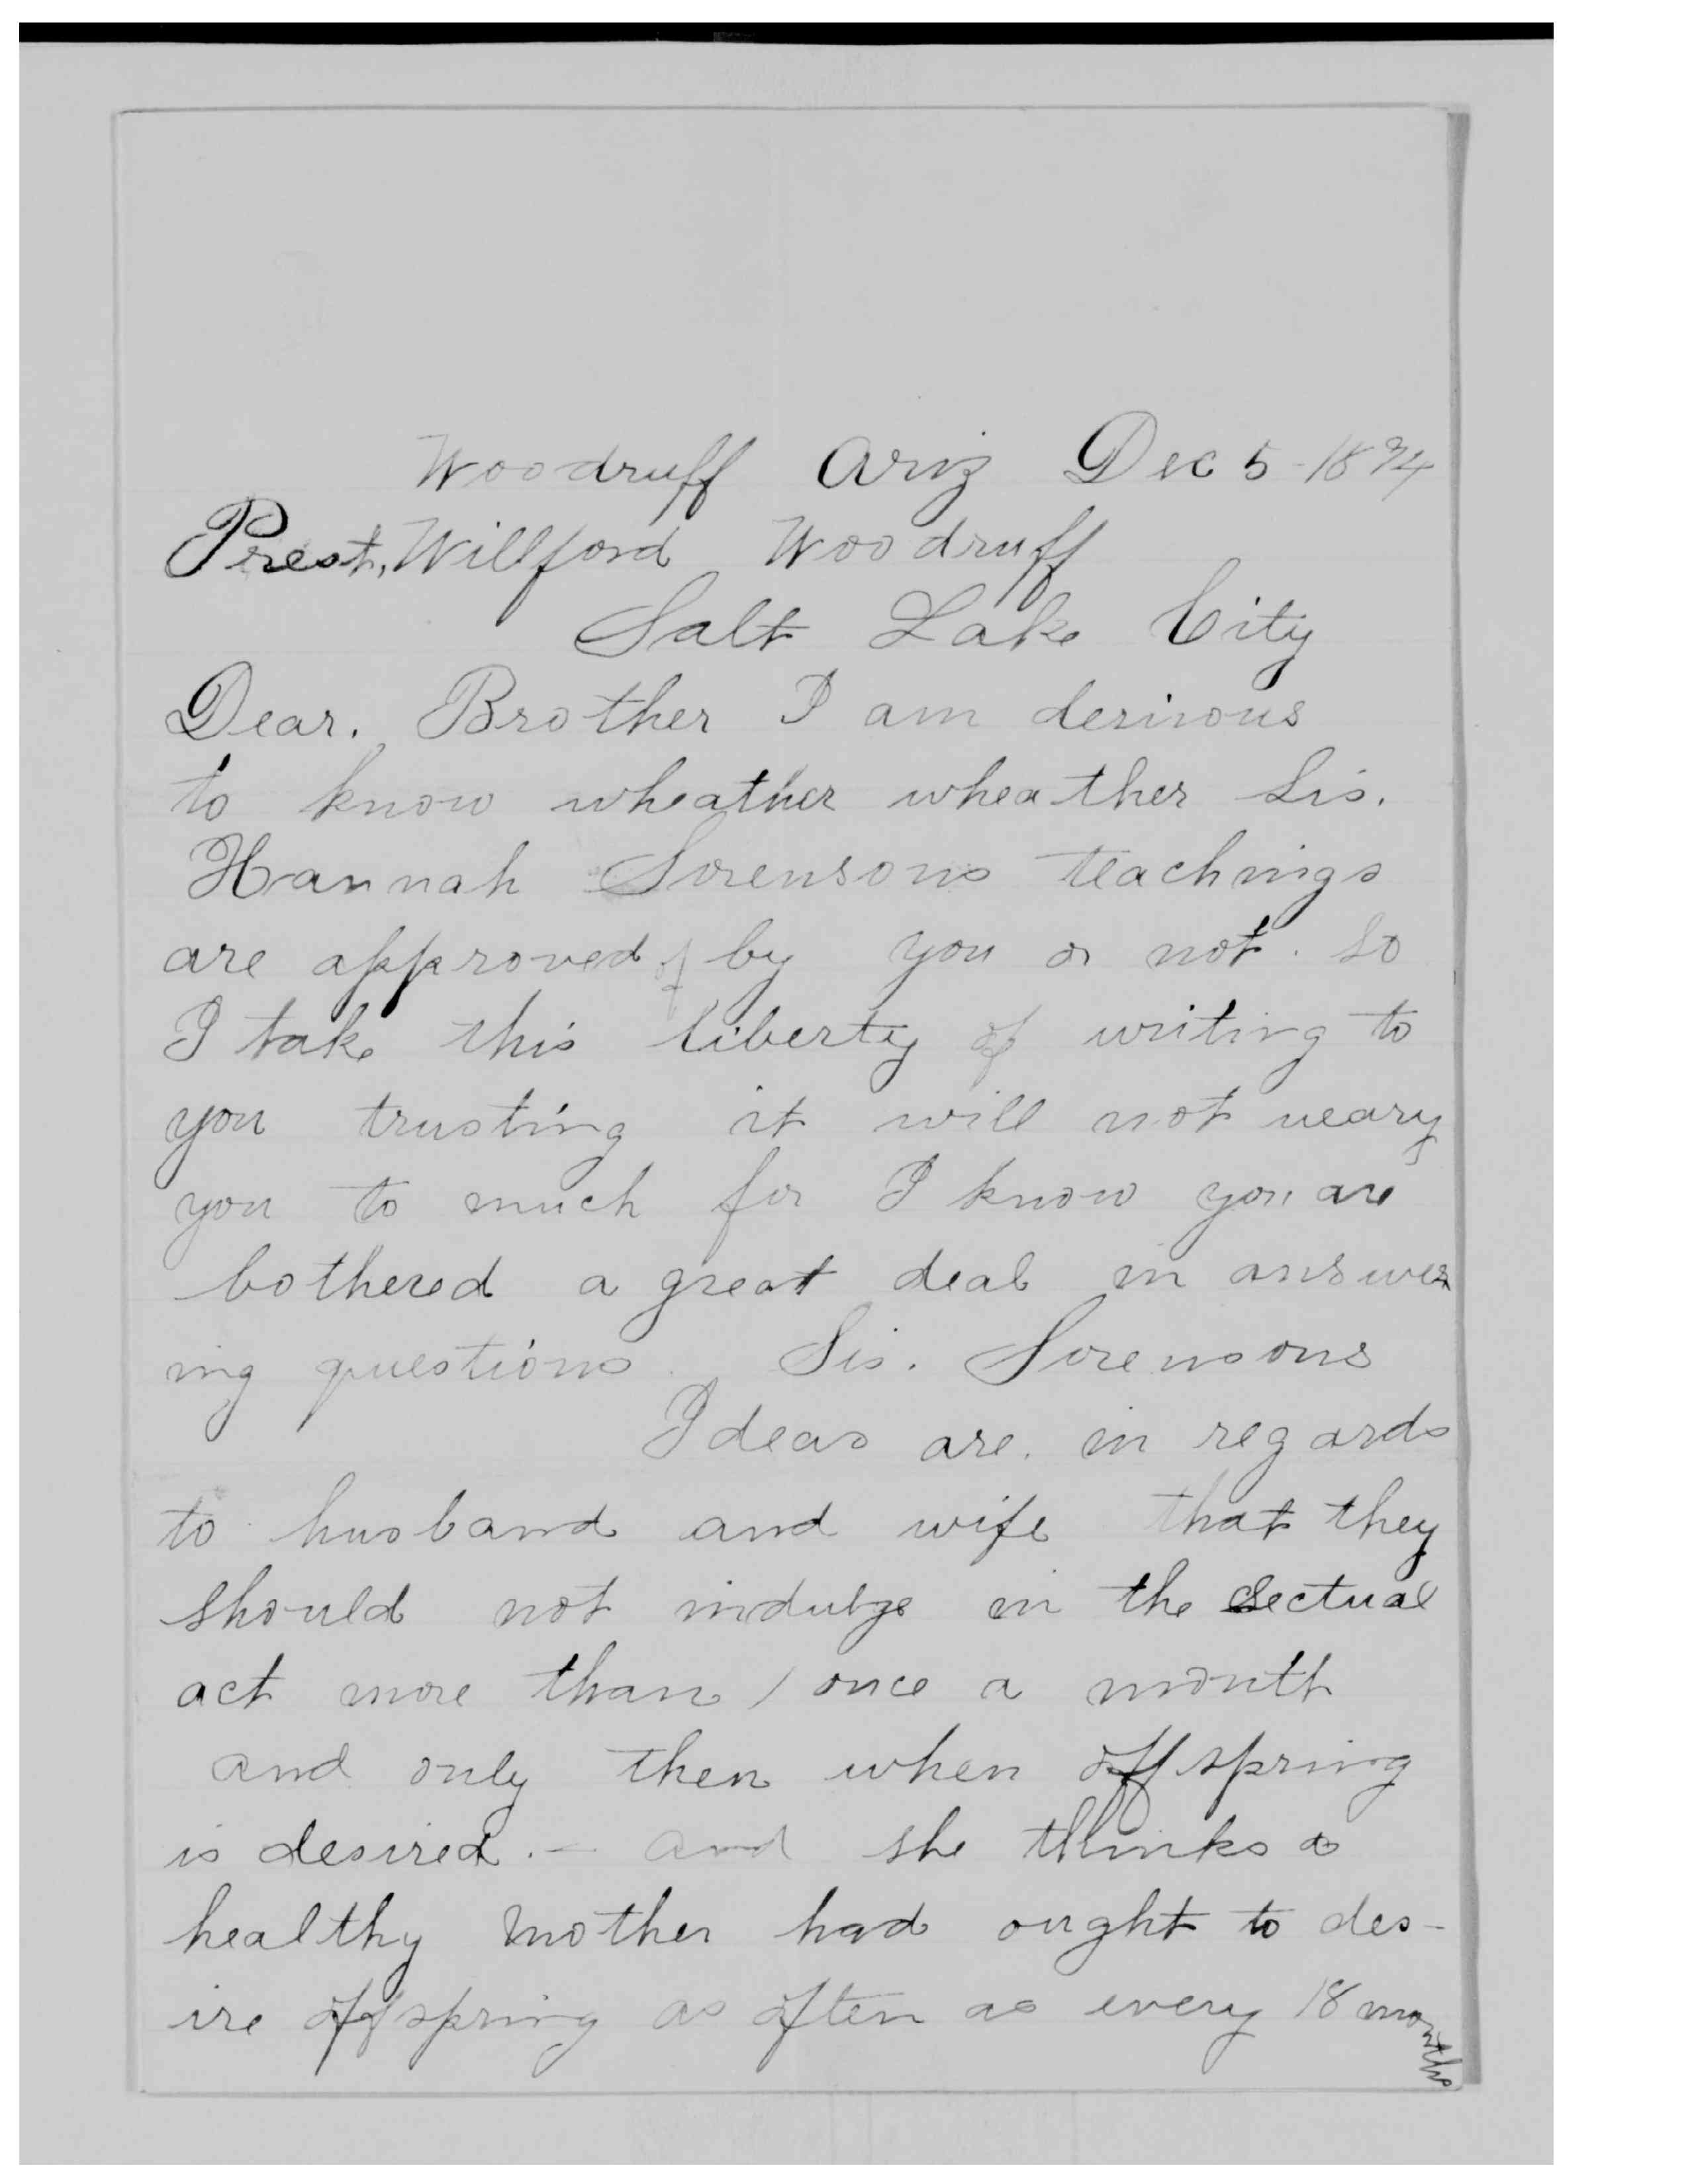 Woodruff Ariz Dec 5 - 1894
Prest, Willford Woodruff
Salt Lake City
Dear. Brother I am desirous
to know wheather wheather Sis.
Hannah Sorensons teachings
are approved of by you or not. So
I take this liberty of writing to
you trusting it will not weary
you to much for I know you are
bothered a great deal in answer
ing questions. Sis. Sorensons
Ideas are. in regards
to husband and wife that they
should not indulge in the sectual
act more than / once a month
and only then when offspring
is desired. - and she thinks a
healthy mother had ought to des-
ire offspring as often as every 18 months